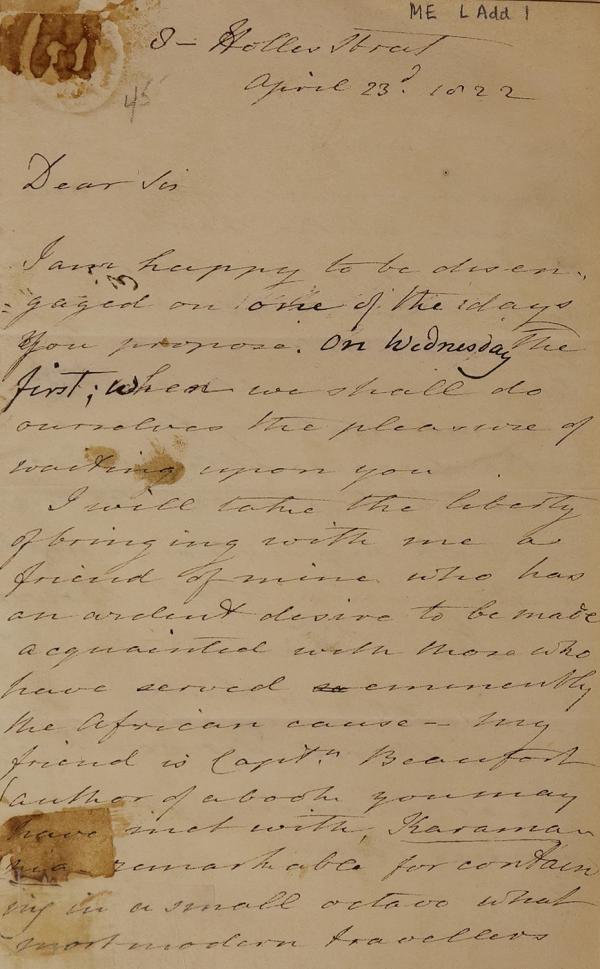 ME L Add 1
45
8 - Holles Street
April 23d. 1822
Dear Sir
I am happy to be disen-
gaged on one of the days
you propose. On Wednesday the
first; when we shall do
ourselves the pleasure of
waiting upon you
I will take the liberty
of bringing with me a
friend of mine who has
an ardent desire to be made
acquainted with those who
have served so eminently
the African cause - my
friend is Captn Beaufort
author of a book you may
have met with, Karama-
nia remarkable for contain
ing in a small octavo what
most modern travellers